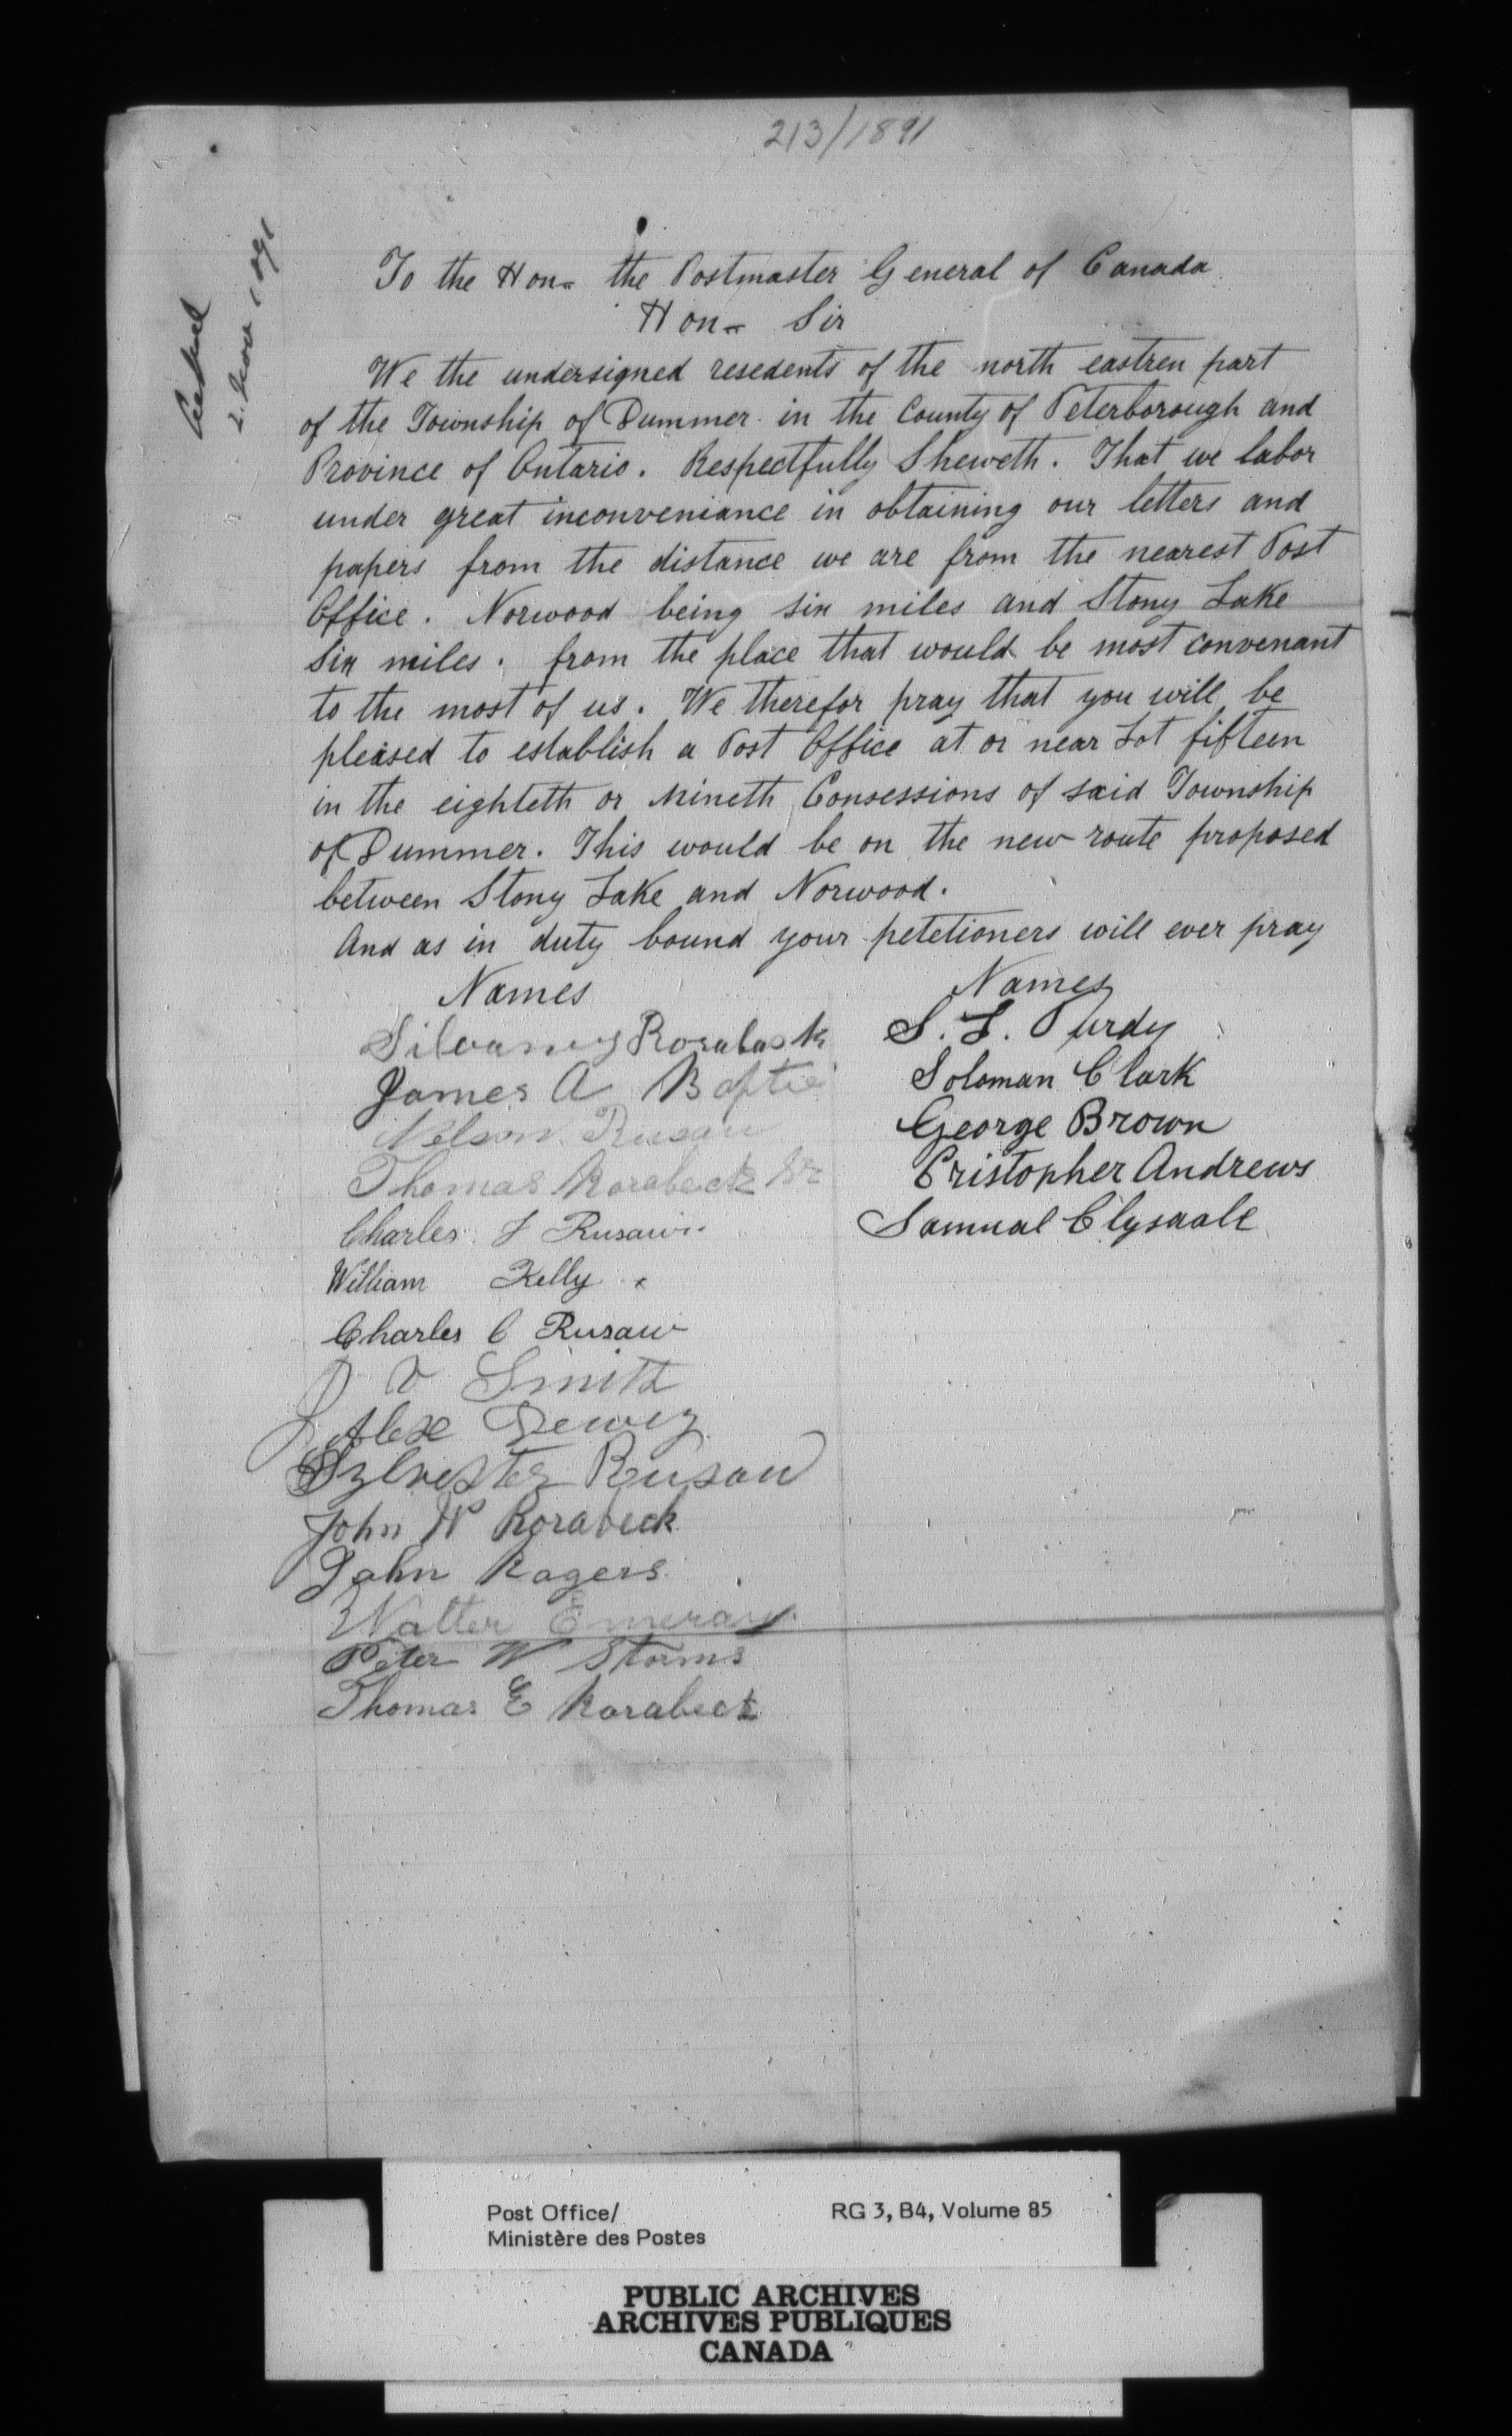 213/1891
2. Nov 1891
To the Hon- the Postmaster General of Canada
Hon- Sir
We the undersigned resedents of the north eastren part
of the Township of Dummer in the County of Peterborough and
Province of Ontario. Respectfully Sheweth. That we labor
under great inconveniance in obtaining our letters and
papers from the distance we are from the nearest Post
Office. Norwood being six miles and Stony Lake
Six miles. from the place that would be most convenant
to the most of us. We therefor pray that you will be
pleased to establish a Post Office at or near Lot fifteen
in the eighteth or Nineth Consessions of said Township
of Dummer. This would be on the new route proposed
between Stony Lake and Norwood.
And as in duty bound your petetioners will ever pray
Names
Silvanus Rorabask
James A Baptie
Nelson Rusaw
Thomas Rorabeck Sr
Charles F Rusaw
William Kelly
Charles C Rusaw
J V Smith
Alex
Sylvester Rusaw
John W Rorabeck
John Rogers
Walter Emeray
Peter W Storms
Thomas E Rorabeck
Names
S. L. Purdy
Soloman Clark
George Brown
Cristopher Andrews
Samual Clysdale
Post Office/
Ministère des Postes
RG 3, B4, Volume 85
PUBLIC ARCHIVES
ARCHIVES PUBLIQUES
CANADA